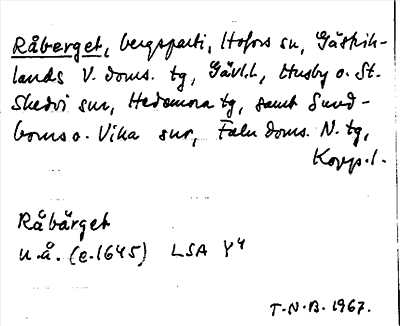 Råberget, bergsparti, Hofors sn, Gästrik-
lands V. doms. tg, Gävl.l, Husby o. St.
Skedvi snr, Hedemora tg, samt Sund-
borns o. Vika snr, Falu doms. N. tg,
Kopp.l.
Råbärget
u.å. (e.1645) LSA Y4
T.N.B. 1967.